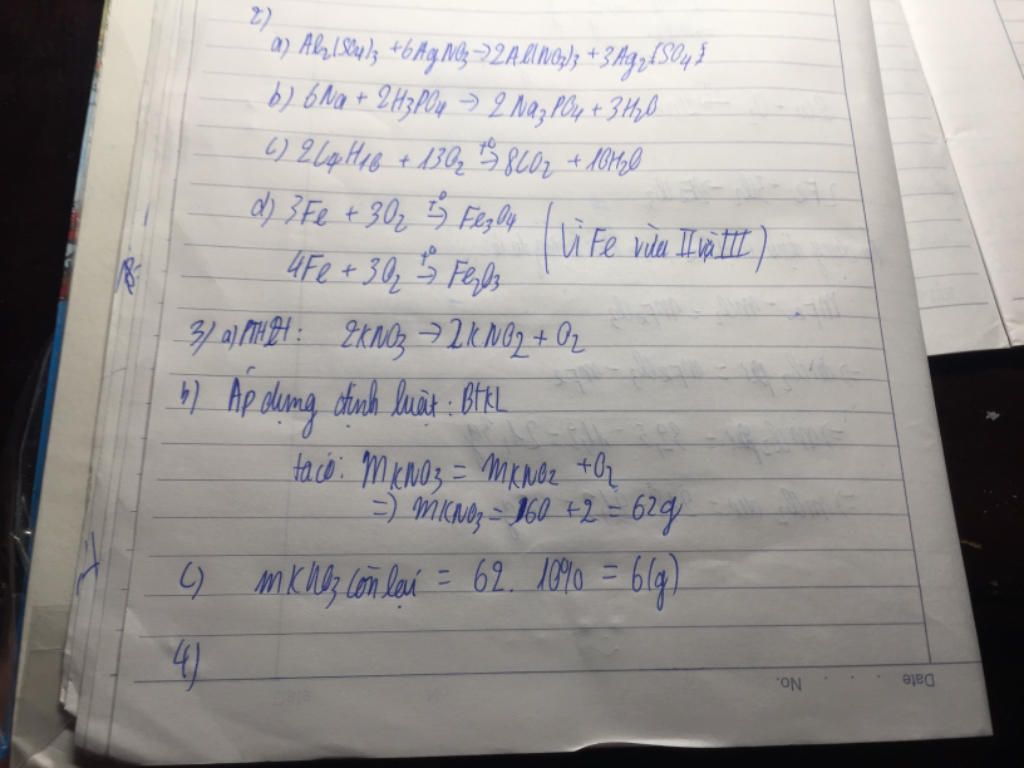 2)
a) Al₂(SO₄)₃ + 6AgNO₃ → 2Al(NO₃)₃ + 3Ag₂SO₄
b) 6Na + 2H₃PO₄ → 2Na₃PO₄ + 3H₂O
c) 2C₄H₁₀ + 13O₂ →(t°) 8CO₂ + 10H₂O
d) 3Fe + 3O₂ →(t°) Fe₃O₄ (Vì Fe vừa II và III)
4Fe + 3O₂ →(t°) Fe₂O₃
3) a) PTHH: 2KNO₃ → 2KNO₂ + O₂
b) Áp dụng định luật: BTKL
ta có: mKNO₃ = mKNO₂ + O₂
=> mKNO₃ = 60 + 2 = 62g
c) mKNO₃ còn lại = 62. 10% = 6(g)
4)
Date . . . No.